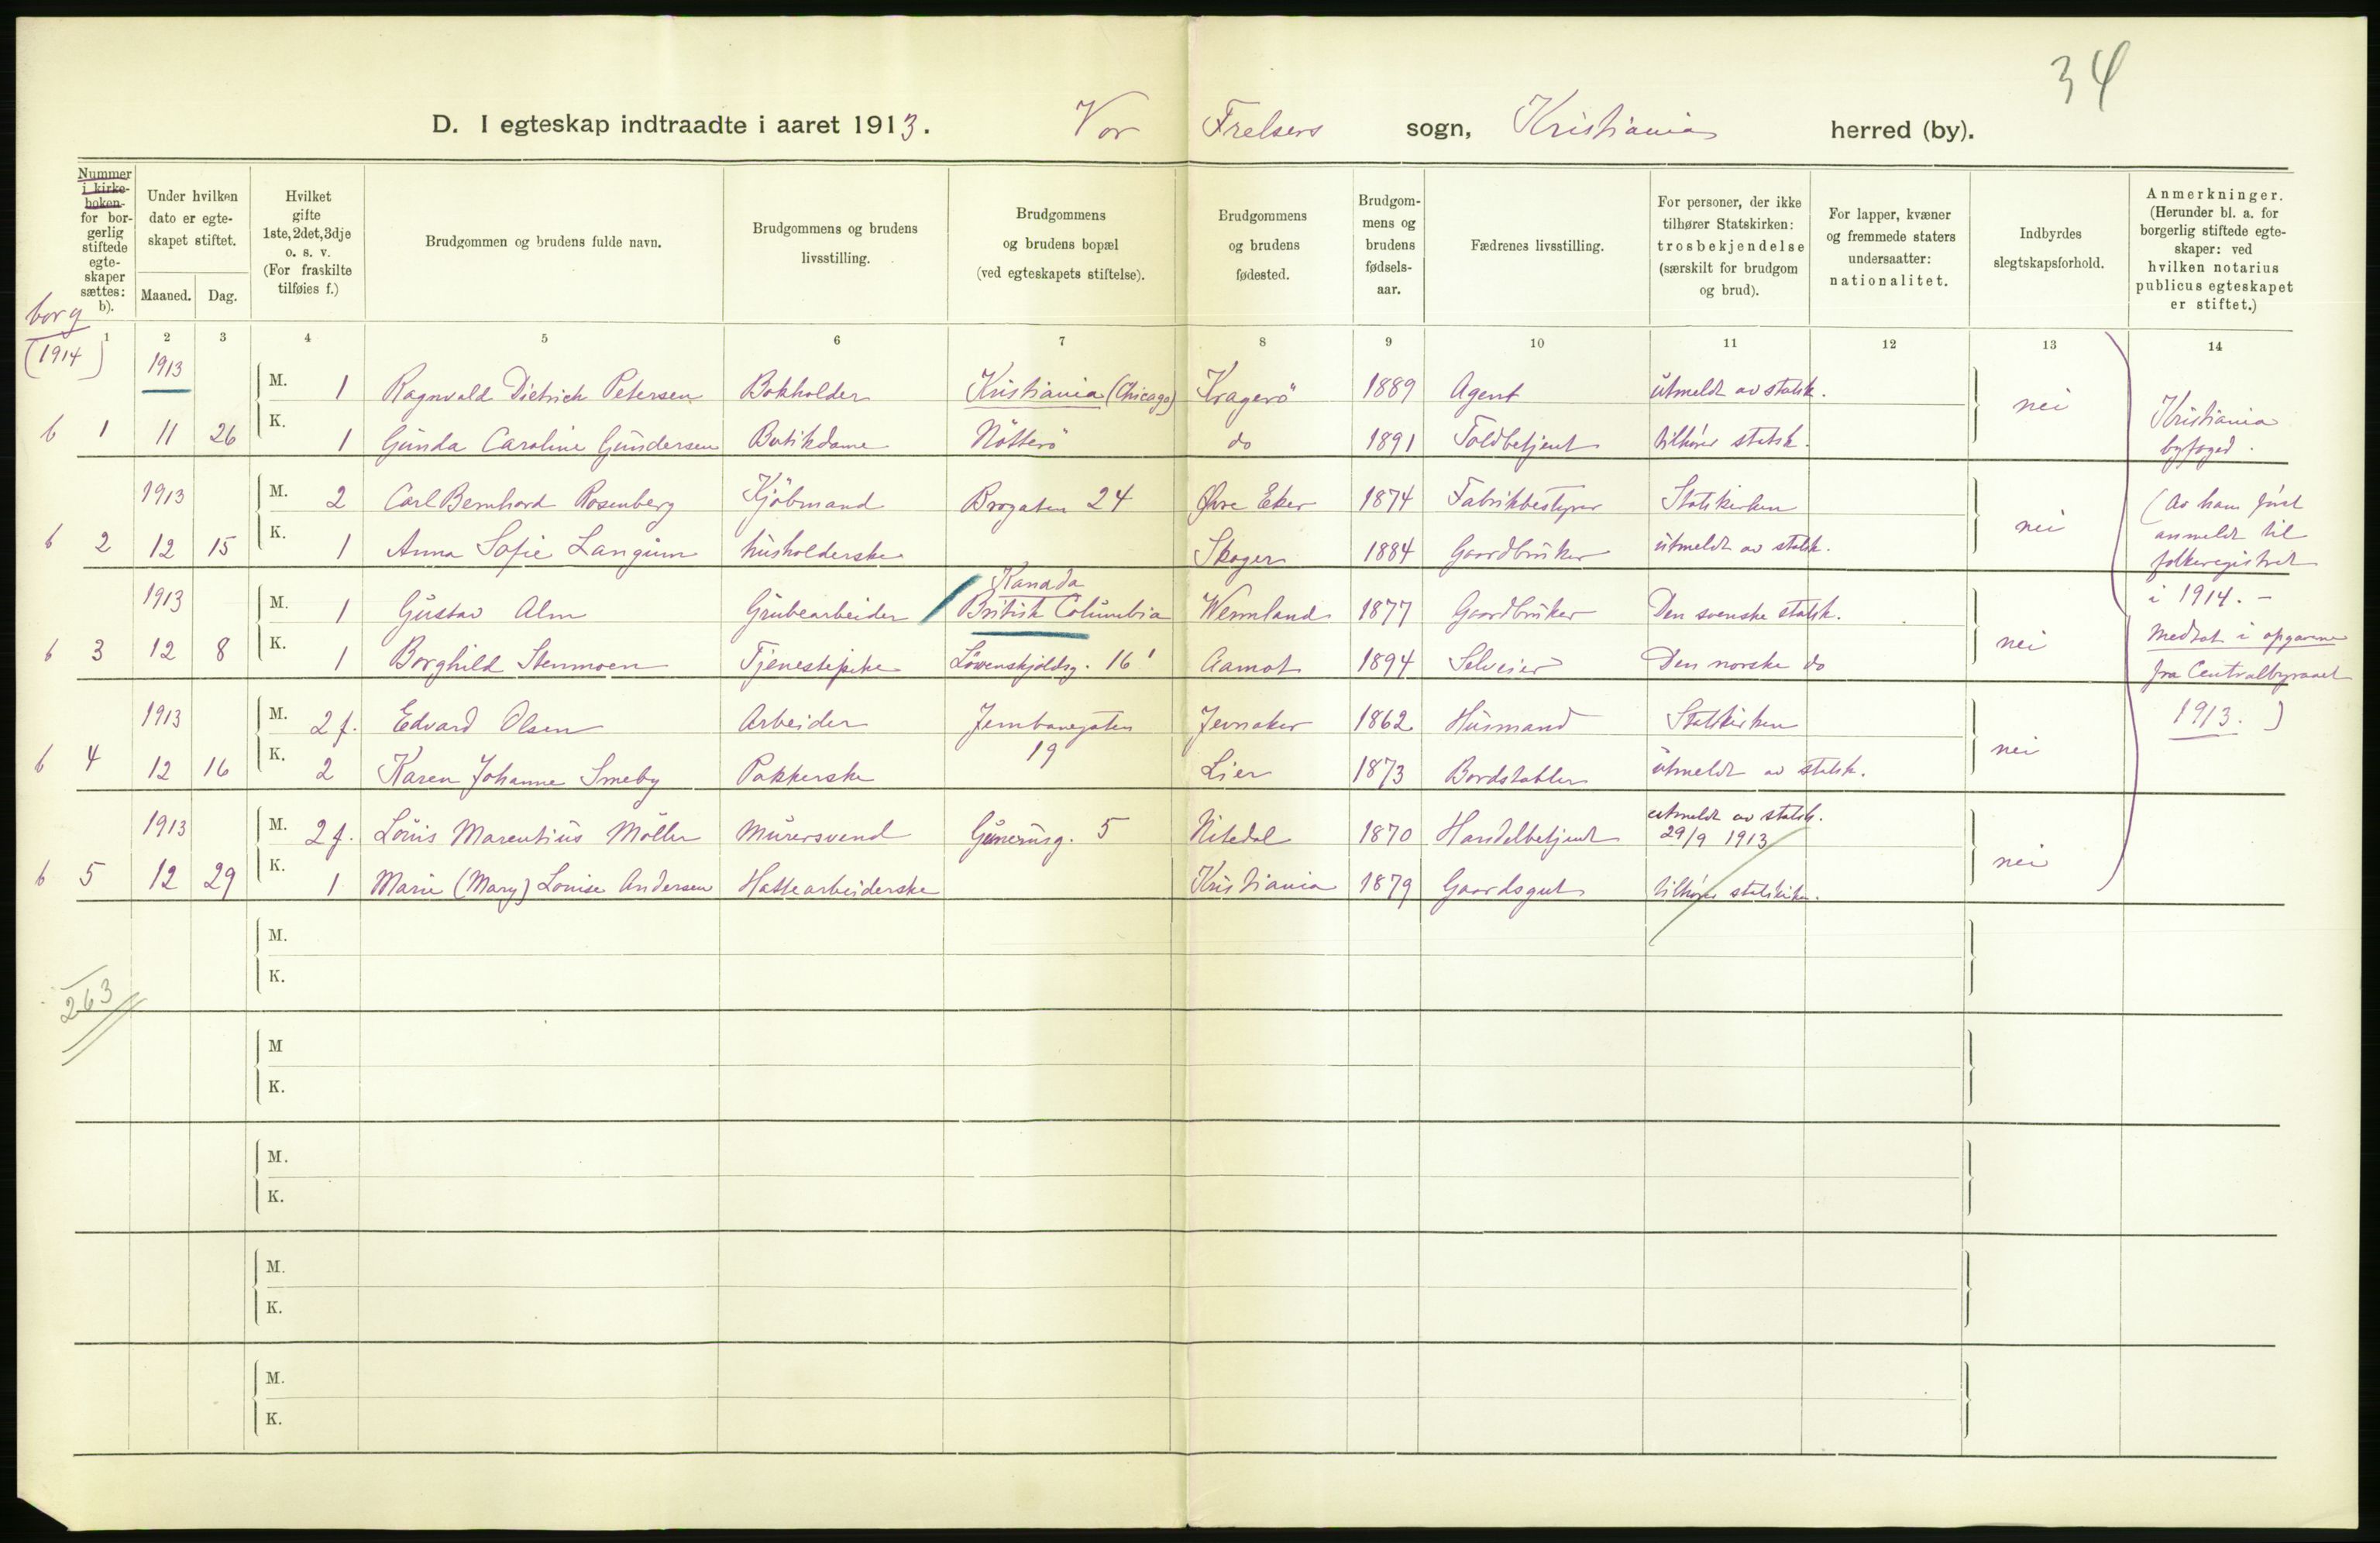 34
D. I egteskap indtraadte i aaret 1913. Vor Frelsers sogn, Kristiania herred (by).
Nummer
i kirke-
boken
for bor-
gerlig
stiftede
egte-
skaper
sættes:
b).
Under hvilken
dato er egte-
skapet stiftet.
Maaned. Dag.
Hvilket
gifte
1ste, 2det, 3dje
o. s. v.
(For fraskilte
tilføies f.)
Brudgommen og brudens fulde navn.
Brudgommens og brudens
livsstilling.
Brudgommens
og brudens bopæl
(ved egteskapets stiftelse).
Brudgommens
og brudens
fødested.
Brudgom-
mens og
brudens
fødsels-
aar.
Fædrenes livsstilling.
For personer, der ikke
tilhører Statskirken:
trosbekjendelse
(særskilt for brudgom
og brud).
For lapper, kvæner
og fremmede staters
undersaatter:
nationalitet.
Indbyrdes
slegtskapsforhold.
Anmerkninger.
(Herunder bl. a. for
borgerlig stiftede egte-
skaper: ved
hvilken notarius
publicus egteskapet
er stiftet.)
borg
(1914)
1 2 3 4 5 6 7 8 9 10 11 12 13 14
1913 M. 1 Ragnvald Dietrich Petersen Bokholder Kristiania (Chicago) Kragerö 1889 Agent utmeldt av statsk. nei
b 1 11 26 K. 1 Gunda Caroline Gundersen Butikdame Nötterö do 1891 Toldbetjent tilhører statsk.
1913 M. 2 Carl Bernhard Rosenberg Kjöbmand Brogaten 24 Øvre Eker 1874 Fabrikbestyrer Statskirken nei
b 2 12 15 K. 1 Anna Sofie Langum husholderske Skoger 1884 Gaardbruker utmeldt av statsk.
Kanada
1913 M. 1 Gustav Alm Grubearbeider British Columbia Wermland 1877 Gaardbruker Den svenske statsk. nei
b 3 12 8 K. 1 Borghild Stenmoen Tjenestepike Løvenskjoldsg. 16 Aamot 1894 Selveier Den norske do
1913 M. 2 f. Edvard Olsen Arbeider Jernbanegaten Jevnaker 1862 Husmand Statskirken nei
19
b 4 12 16 K. 2 Karen Johanne Smeby Pakkerske Lier 1873 Bordstabler utmeldt av statsk.
1913 M. 2 f. Louis Marentius Möller Murersvend Gunerusg. 5 Nitedal 1870 Handelbetjent utmeldt av statsk.
29/9 1913 nei
b 5 12 29 K. 1 Marie (Mary) Louise Andersen Hattearbeiderske Kristiania 1879 Gaardsgut tilhører statskirken.
Kristiania
byfoged.
(Av ham først
anmeldt til
folkeregistret
i 1914. -
Medtat i opgavene
fra Centralbyraaet
1913.)
M.
K.
263
M
K.
M.
K.
M.
K.
M.
K.